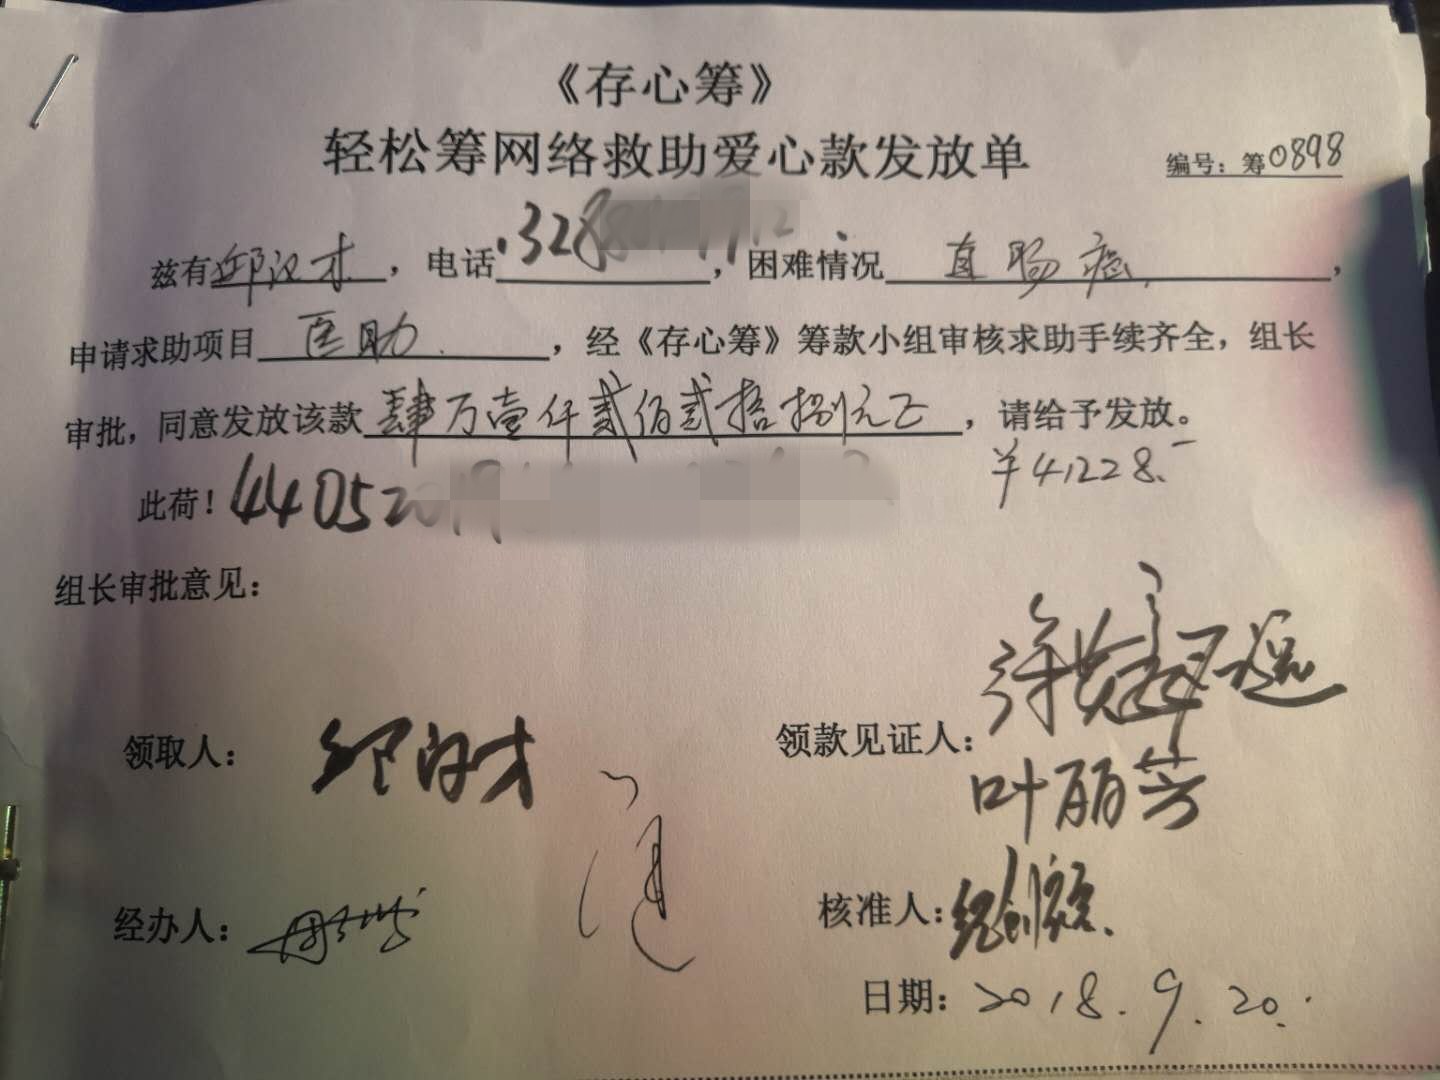 《存心筹》
轻松筹网络救助爱心款发放单
编号：筹0898
兹有邱汉才，电话，困难情况直肠癌，
申请求助项目医助，经《存心筹》筹款小组审核求助手续齐全，组长
审批，同意发放该款肆万壹仟贰佰贰拾捌元正，请给予发放。
￥41228.-
此荷！
组长审批意见：
领取人：邱汉才
领款见证人：
叶丽芳
经办人：
核准人：
日期：2018.9.20.